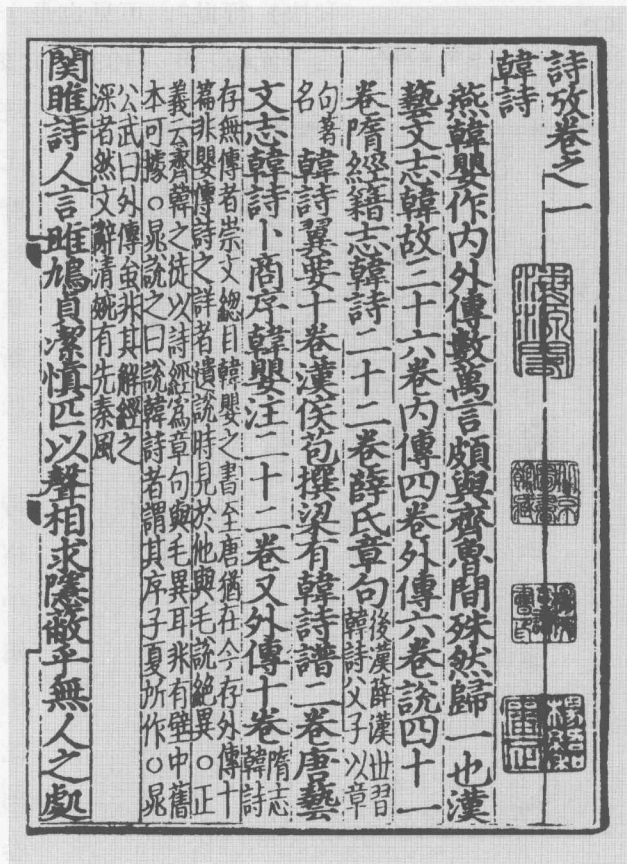 詩攷卷之一
韓詩
燕韓嬰作内外傳數萬言頗與齊魯間殊然歸一也漢
藝文志韓故三十六卷内傳四卷外傳六卷說四十一
卷隋經籍志韓詩二十二卷薛氏章句後漢薛漢世習
韓詩父子以章
句著
名韓詩翼要十卷漢侯苞撰梁有韓詩譜二卷唐藝
文志韓詩卜商序韓嬰注二十二卷又外傳十卷隋志
韓詩
存無傳者崇文緫目韓嬰之書至唐猶在今存外傳十
篇非嬰傳詩之詳者遺說時見於他與毛說絶異○正
義云齊韓之徒以詩經爲章句與毛異耳非有壁中舊
本可據○晁說之曰說韓詩者謂其序子夏所作○晁
公武曰外傳虽非其解經之
深者然文辭清婉有先秦風
関雎詩人言雎鳩貞潔慎匹以聲相求隱蔽乎無人之處